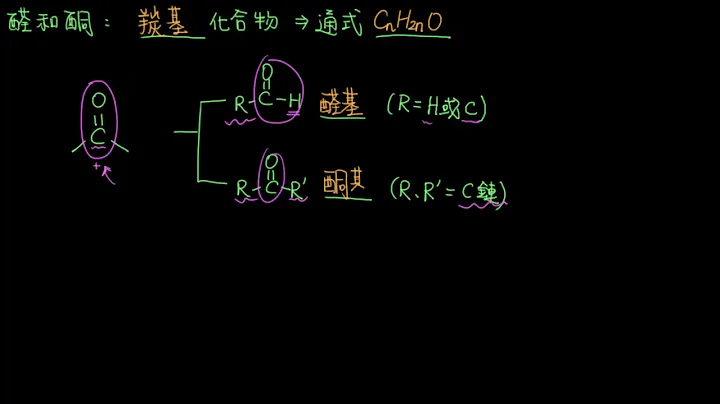 醛和酮：羰基化合物 ⇒ 通式 CnH2nO
O
C
+
O
R-C-H 醛基 (R=H或C)
O
R-C-R' 酮基 (R、R'=C鏈)